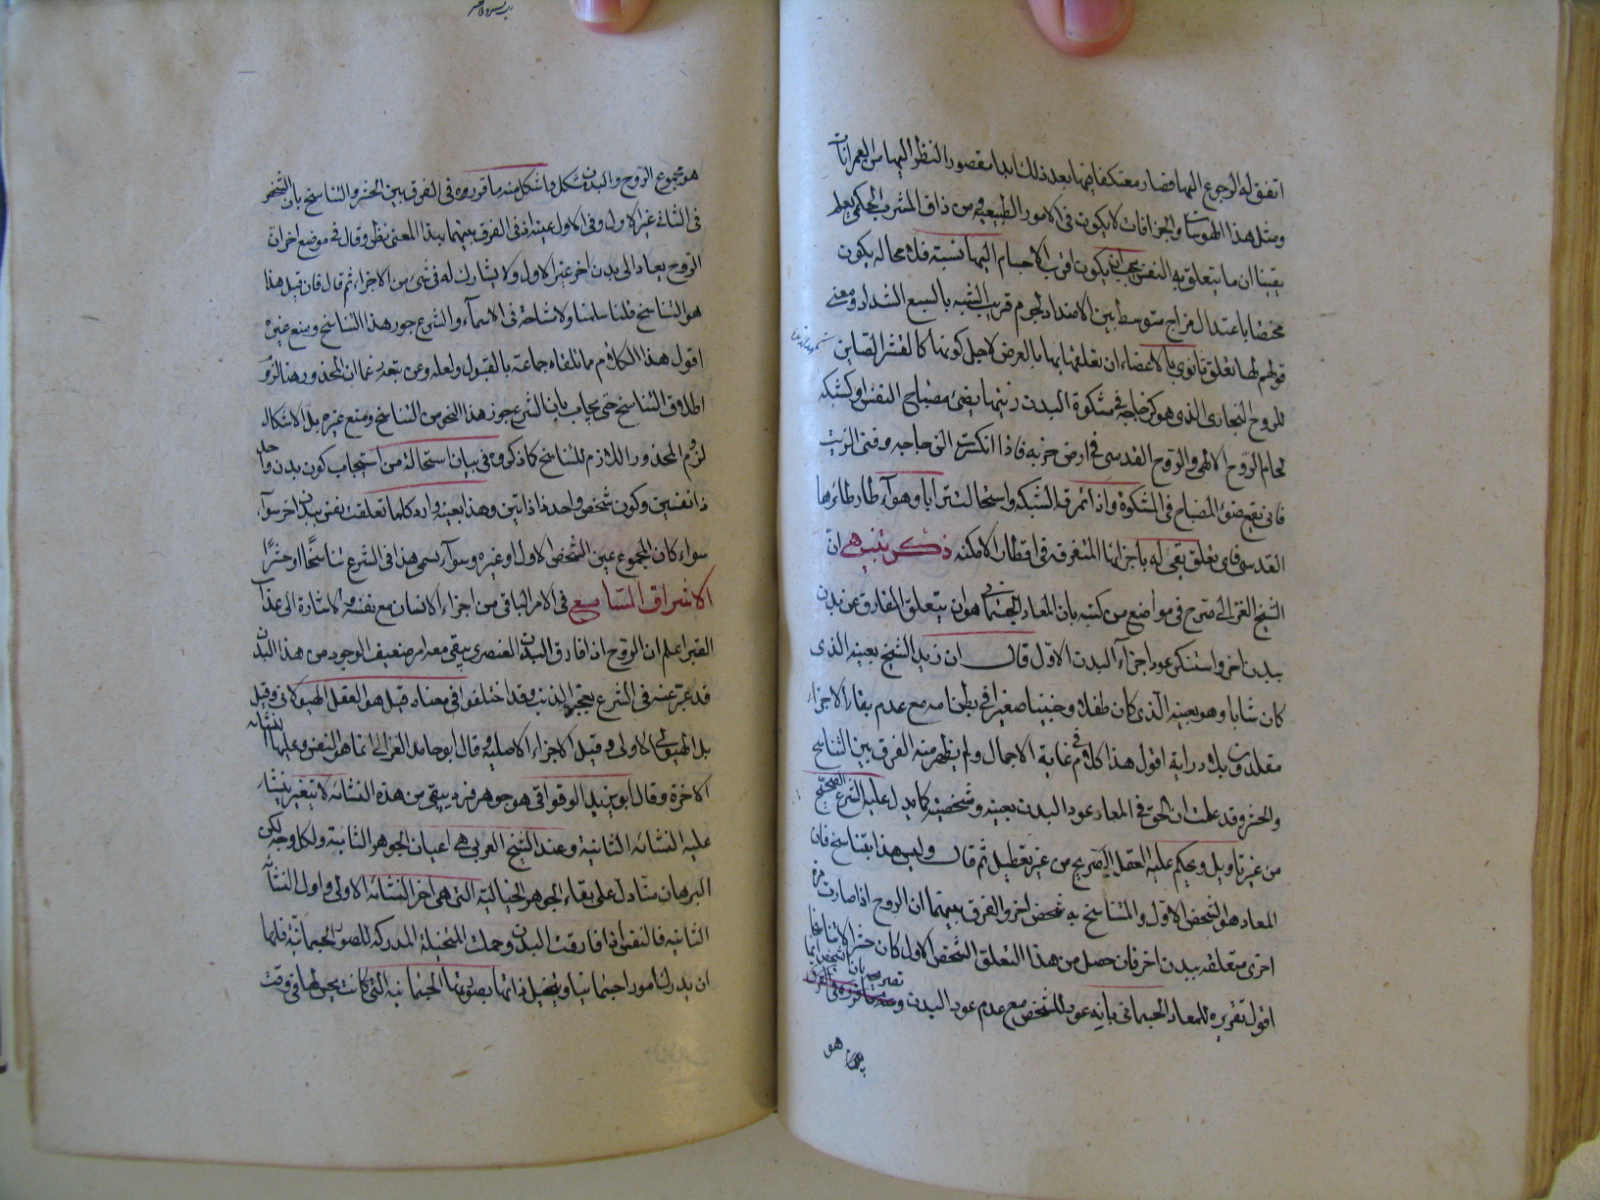 اتفق له الرجوع اليها فصار معتكفا فيها بعد ذلك ابدا مقصور النظر اليها من العمرانات
ومثل هذا الهوسات والجزافات لا يكون فى الامور الطبيعية ومن ذاق المشرب الحكمى يعلم
يقينا ان ما يتعلق به النفس يجب ان يكون اقرب الاجسام اليها نسبة فلا محاله يكون
مختصا باعتدال مزاج متوسط بين الاضداد لجرم قريب الشبه بالسبع الشداد ومعنى
قولهم لها تعلق ثانوى بالاعضاء ان تعلقها بها بالعرض لاجل كونها كالقشر الصاين
للروح البخارى الذى هو كزجاجه فى مشكوة البدن زيتها يضئ مصباح النفس او كشبكه
لحمام الروح الالهى والروح القدسى فى ارض خربه فاذا انكسرت الزجاجه وفنى الزيت
فانى يقع ضوء المصباح فى المشكوة واذا تمزقت الشبكه واستحالت ترابا وهوآء طار طائرها
القدسى فاى تعلق بقى له باجزائها المتفرقه فى اقطار الامكنه ذكر تنبيهى ان
الشيخ الغزالى صرح فى مواضع من كتبه بان المعاد الجسمانى هو ان يتعلق المفارق عن بدن
ببدن اخر واستنكر عود اجزآء البدن الاول قال ان زيد الشيخ بعينه الذى
كان شابا وهو بعينه الذى كان طفلا وجنينا صغيرا فى بطن امه مع عدم بقاء الاجزاء
مقلدون بلا دراية اقول هذا كلام فى غاية الاجمال ولم يظهر منه الفرق بين التناسخ
والحشر وقد علمت ان الحق فى المعاد عود البدن بعينه وشخصيته كما يدل عليه الشرع الصحيح
من غير تاويل ويحكم عليه العقل الصريح من غير تعطيل ثم قال وليس هذا بتناسخ فان
المعاد هو الشخص الاول والمتناسخ به شخص اخر والفرق بينهما ان الروح اذا صارت مرة
اخرى متعلقه ببدن اخر فان حصل من هذا التعلق الشخص الاول كان حشرا لا تناسخا
اقول تقريره للمعاد الجسمانى بانه عود للشخص مع عدم عود البدن
هو
هو مجموع الروح والبدن مشكل واشكل منه ما قرروه فى الفرق بين الحشر والتناسخ بان الشخص
فى الثانى غير الاول وفى الاول عينه اذ فى الفرق بينهما بهذا المعنى نظر وقال فى موضع اخر ان
الروح يعاد الى بدن اخر غير الاول ولا يشارك له فى شئ من الاجزاء ثم قال فان قيل هذا
هو التناسخ قلنا سلمنا ولا مشاحة فى الاسمآء والشرع جوز هذا التناسخ ومنع غيره
اقول هذا الكلام مما تلقاه جماعة بالقبول ولعله وعن زعما ان المحذور هنا لزوم
اطلاق التناسخ حتى يجاب بان الشرع جوز هذا النحو من التناسخ ومنع غيره بل الاشكال
لزوم المحذور اللازم للتناسخ كما ذكروه فى بيان استحالته من استيجاب كون بدن واحد
ذا نفسين وكون شخص واحد ذا ذاتين وهذا بعينه وارد كلما تعلقت نفس ببدن اخر سوآء
سواء كان المجموع عين الشخص الاول او غيره وسوآء يسمى هذا فى الشرع تناسخا او حشرا
الاشراق التاسع فى الامر الباقى من اجزاء الانسان مع نفسه والاشارة الى عذاب
القبر اعلم ان الروح اذا فارق البدن العنصرى يبقى معه امر ضعيف الوجود من هذا البدن
قد عبر عنه فى الشرع بعجب الذنب وقد اختلفوا فى معناه قيل هو العقل الهيولانى وقيل
بل الهيولى الاولى وقيل الاجزاء الاصلية وقال ابو حامد الغزالى انما هو النفس وعليها النشأة
الاخرة وقال ابو يزيد الوقواقى هو جوهر فرد يبقى من هذه النشأة لا يتغير ينشأ
عليه النشأة الثانية وعند الشيخ العربى هى اعيان الجوهر الثابتة ولكل وجه لكن
البرهان منا دل على بقاء الجوهر الخيالية التى هى اخر النشأة الاولى واول النشأة
الثانيه فالنفس اذا فارقت البدن وحملت المتخيلة المدركه للصور الجسمانية فلها
ان يدرك امورا جسمانيا ويتخيل ذاتها بصورتها الجسمانيه التى كانت يحس بها فى وقت